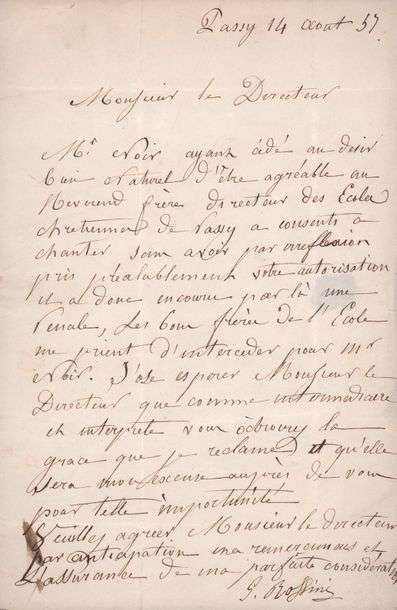 Passy 14 Aout 57.
Monsieur le Directeur
Mr Noir ayant cédé au desir
bien Naturel d'être agréable au
Reverend frère directeur des Ecoles
chretiennes de Passy a consenti a
chanter sans avoir par irreflexion
pris préalablement votre autorisation
il a donc encouru par là une
Penale, Les bons frères de l'Ecole
me prient d'interceder pour mr
Noir. J'ose esperer Monsieur le
Directeur que comme intermediaire
et interprete vous
grace que je reclame et qu'elle
sera mon excuse auprès de vous
pour telle importunité
Veuillez agreer Monsieur le directeur
par anticipation mes remerciemens et
l'assurance de ma parfaite consideration
G. Rossini